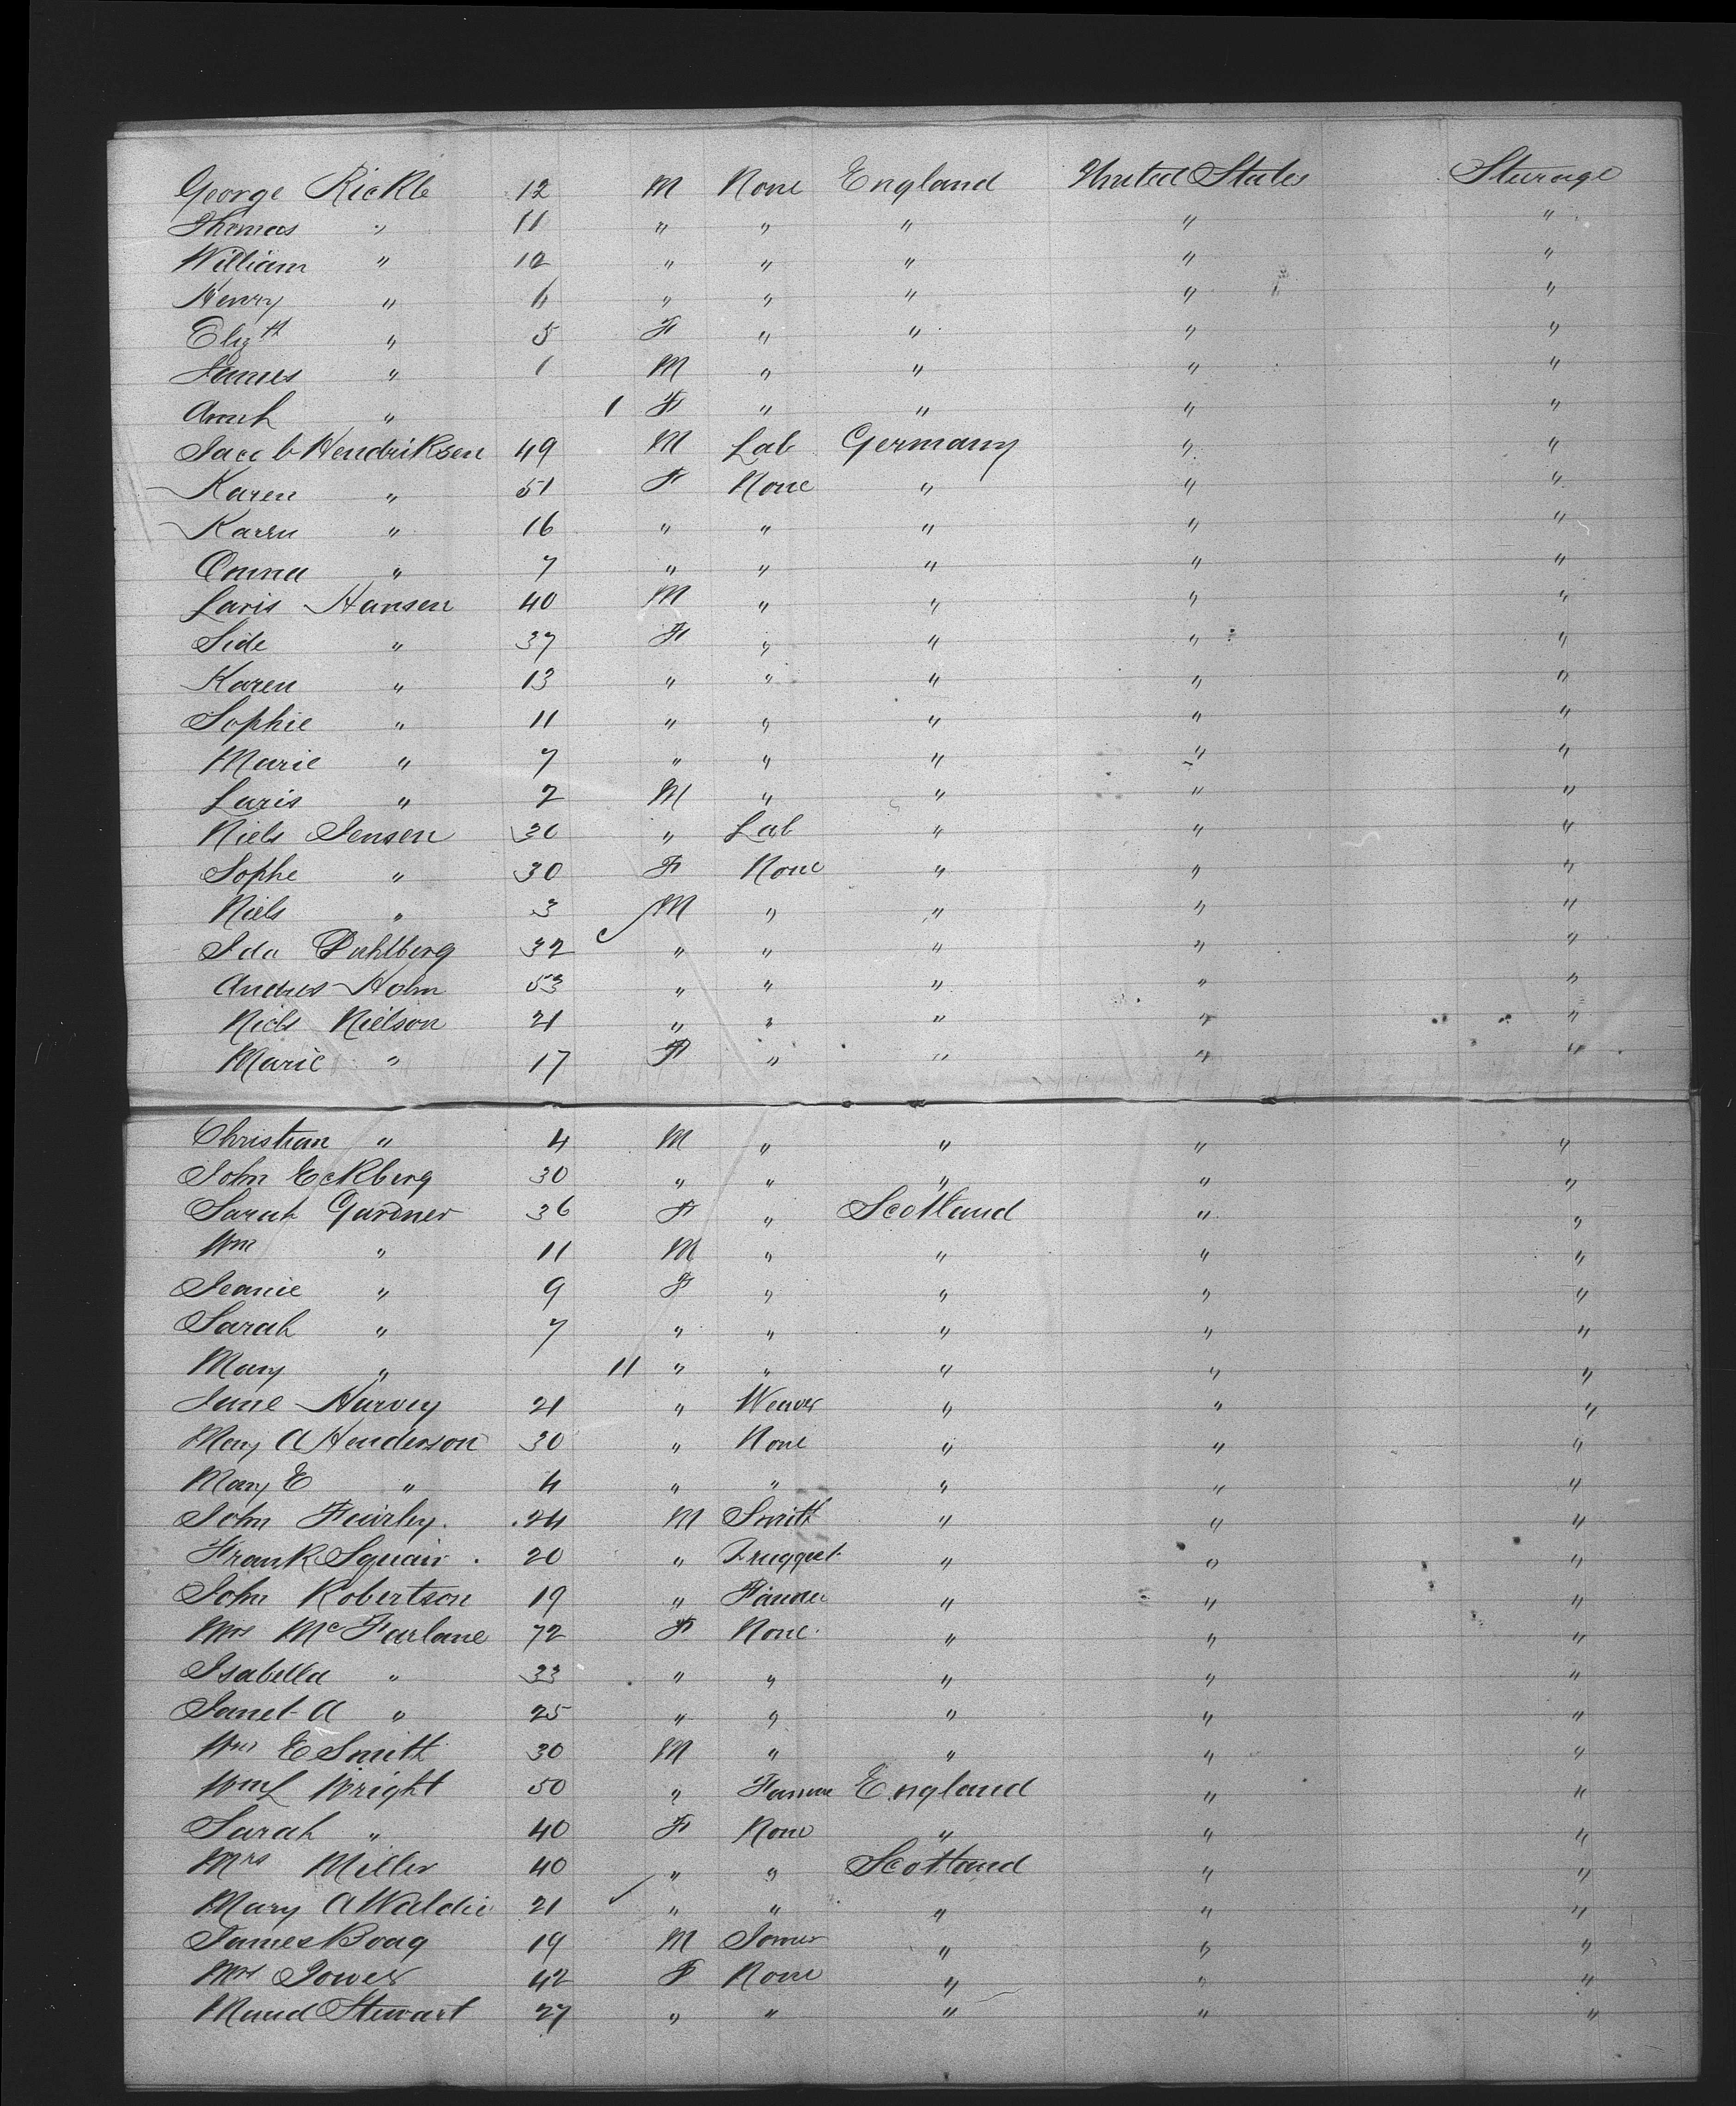 George Rickle 12 M None England United States Steerage
Thomas " 11 " " " " "
William " 10 " " " " "
Henry " 6 " " " " "
Elizth " 5 F " " " "
James " 1 M " " " "
" 1 F " " " "
Jacob Hendriksen 49 M Lab Germany " "
Karen " 51 F None " " "
Karen " 16 " " " " "
Emma " 7 " " " " "
Laris Hansen 40 M " " " "
Side " 37 F " " " "
Karen " 13 " " " " "
Sophie " 11 " " " " "
Marie " 7 " " " " "
Laris " 2 M " " " "
Niels Jensen 30 " Lab " " "
Sophe " 30 F None " " "
Niels " 3 M " " " "
Ida Dahlberg 32 " " " " "
Andres Holm 53 " " " " "
Niels Nielson 21 " " " " "
Marie " 17 F " " " "
Christian " 4 M " " " "
John Eckberg 30 " " " " "
Sarah Gardner 36 F " Scotland " "
Wm " 11 M " " " "
Jeanie " 9 F " " " "
Sarah " 7 " " " " "
Mary " 11 " " " " "
Jane Harvey 21 " Weaver " " "
Mary A Henderson 30 " None " " "
Mary E " 4 " " " " "
John Fairley 24 M Smith " " "
Frank Squair 20 " Druggist " " "
John Robertson 19 " Farmer " " "
Mrs McFarlane 72 F None " " "
Isabella " 33 " " " " "
Janet A " 25 " " " " "
Wm E Smith 30 M " " " "
Wm L Wright 50 " Farmer England " "
Sarah " 40 F None " " "
Mrs Miller 40 " " Scotland " "
Mary A Waldie 21 " " " " "
James Boag 19 M Joiner " " "
Mrs Jower 42 F None " " "
Maud Stewart 27 " " " " "